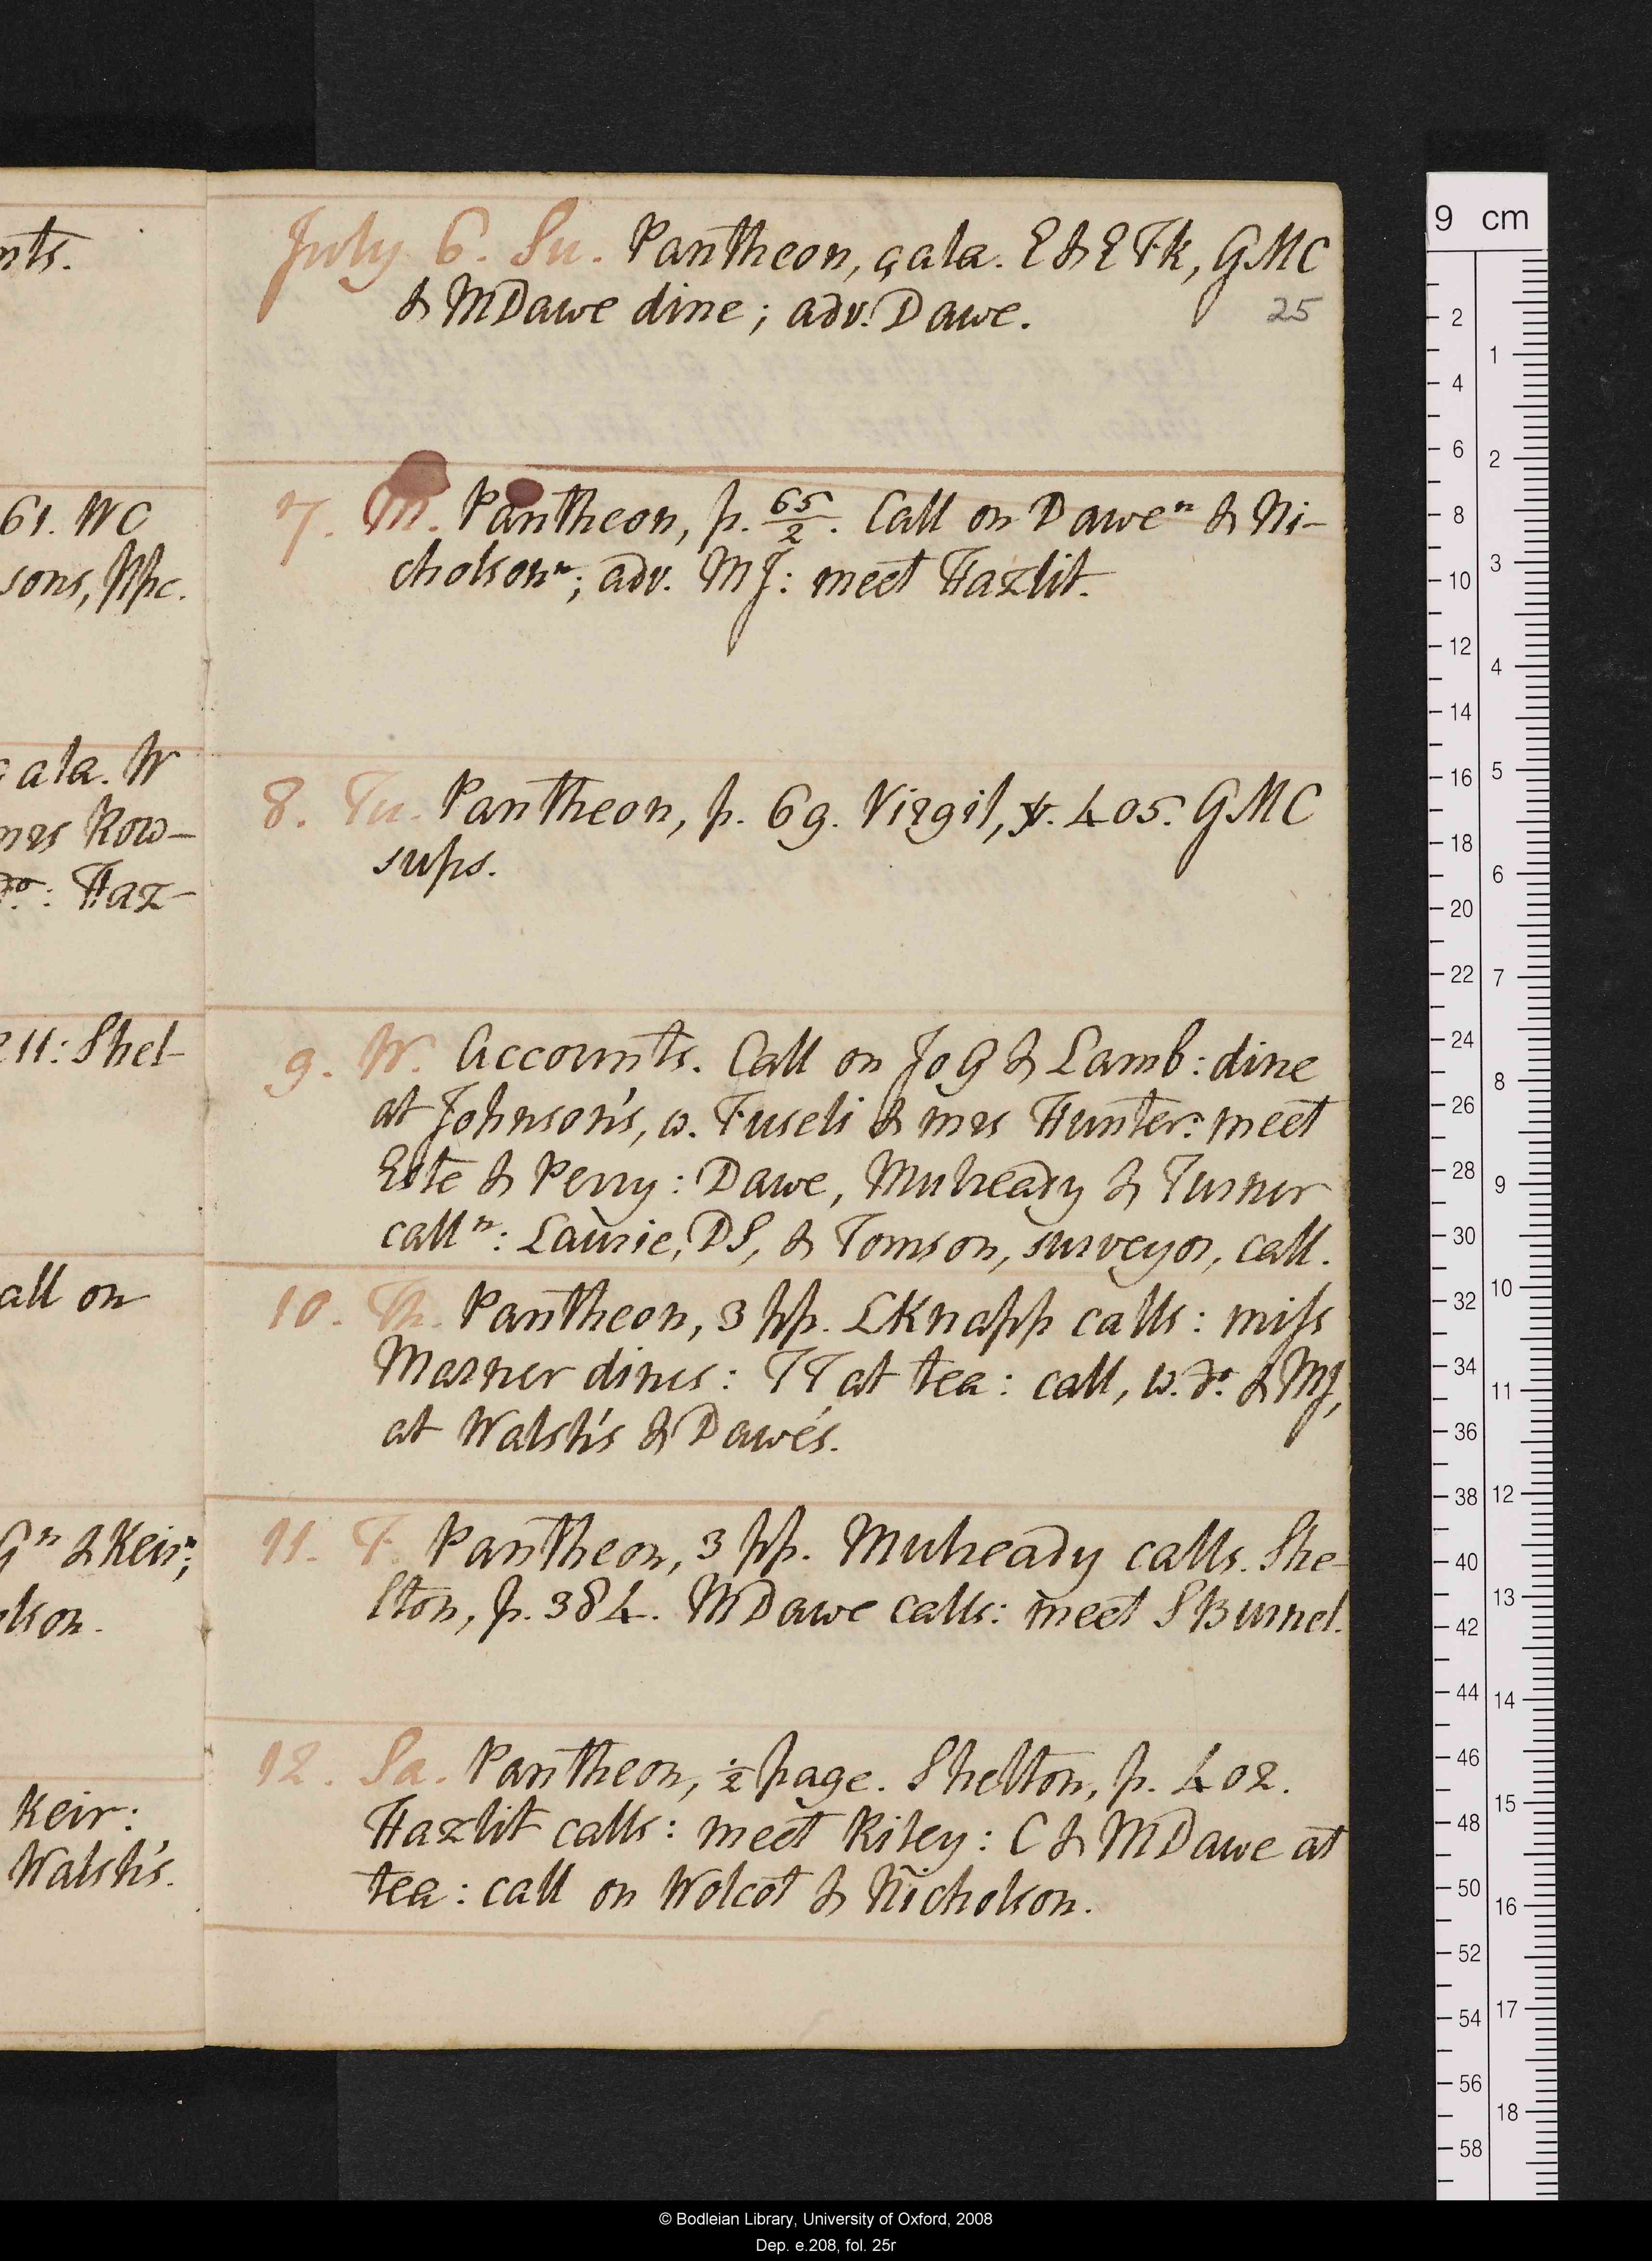 nts.
61. WC
sons, Npc.
ala. W
mrs Row-
do: Haz-
ell: Shel-
all on
Gn & Keirn;
olson.
Keir:
Walsh's.
July 6. Su. Pantheon, gala. E & E Fk, GMC
& MDawe dine; adv. Dawe.
25
7. M. Pantheon, p. 65/2. Call on Dawen & Ni-
cholsonn; adv. MJ: meet Hazlit.
8. Tu. Pantheon, p. 69. Virgil, v. 405. GMC
sups.
9. W. Accounts. Call on Jo G & Lamb: dine
at Johnson's, w. Fuseli & mrs Hunter: meet
Este & Perry: Dawe, Mulready & Turner
calln: Laurie, DS, & Tomson, surveyor, call.
10. Th. Pantheon, 3 pp. LKnapp calls: miss
Marner dines: TT at tea: call, w. do. & MJ,
at Walsh's & Dawe's.
11. F. Pantheon, 3 pp. Mulready calls. She-
lton, p. 384. MDawe calls: meet SBurnel.
12. Sa. Pantheon, ½ page. Shelton, p. 402.
Hazlit calls: meet Riley: C & MDawe at
tea: call on Wolcot & Nicholson.
9 cm
2
4
6
8
10
12
14
16
18
20
22
24
26
28
30
32
34
36
38
40
42
44
46
48
50
52
54
56
58
1
2
3
4
5
6
7
8
9
10
11
12
13
14
15
16
17
18
© Bodleian Library, University of Oxford, 2008
Dep. e.208, fol. 25r